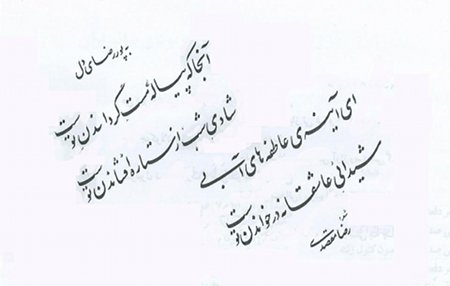 به پوررضای مال
آنجا که پیاله ئیست گرداندن توست
شادی شب از ستاره افشاندن توست
ای آینه ی عاطفه های آبی
شیدائی عاشقانه در خواندن توست
رضا مقصدی